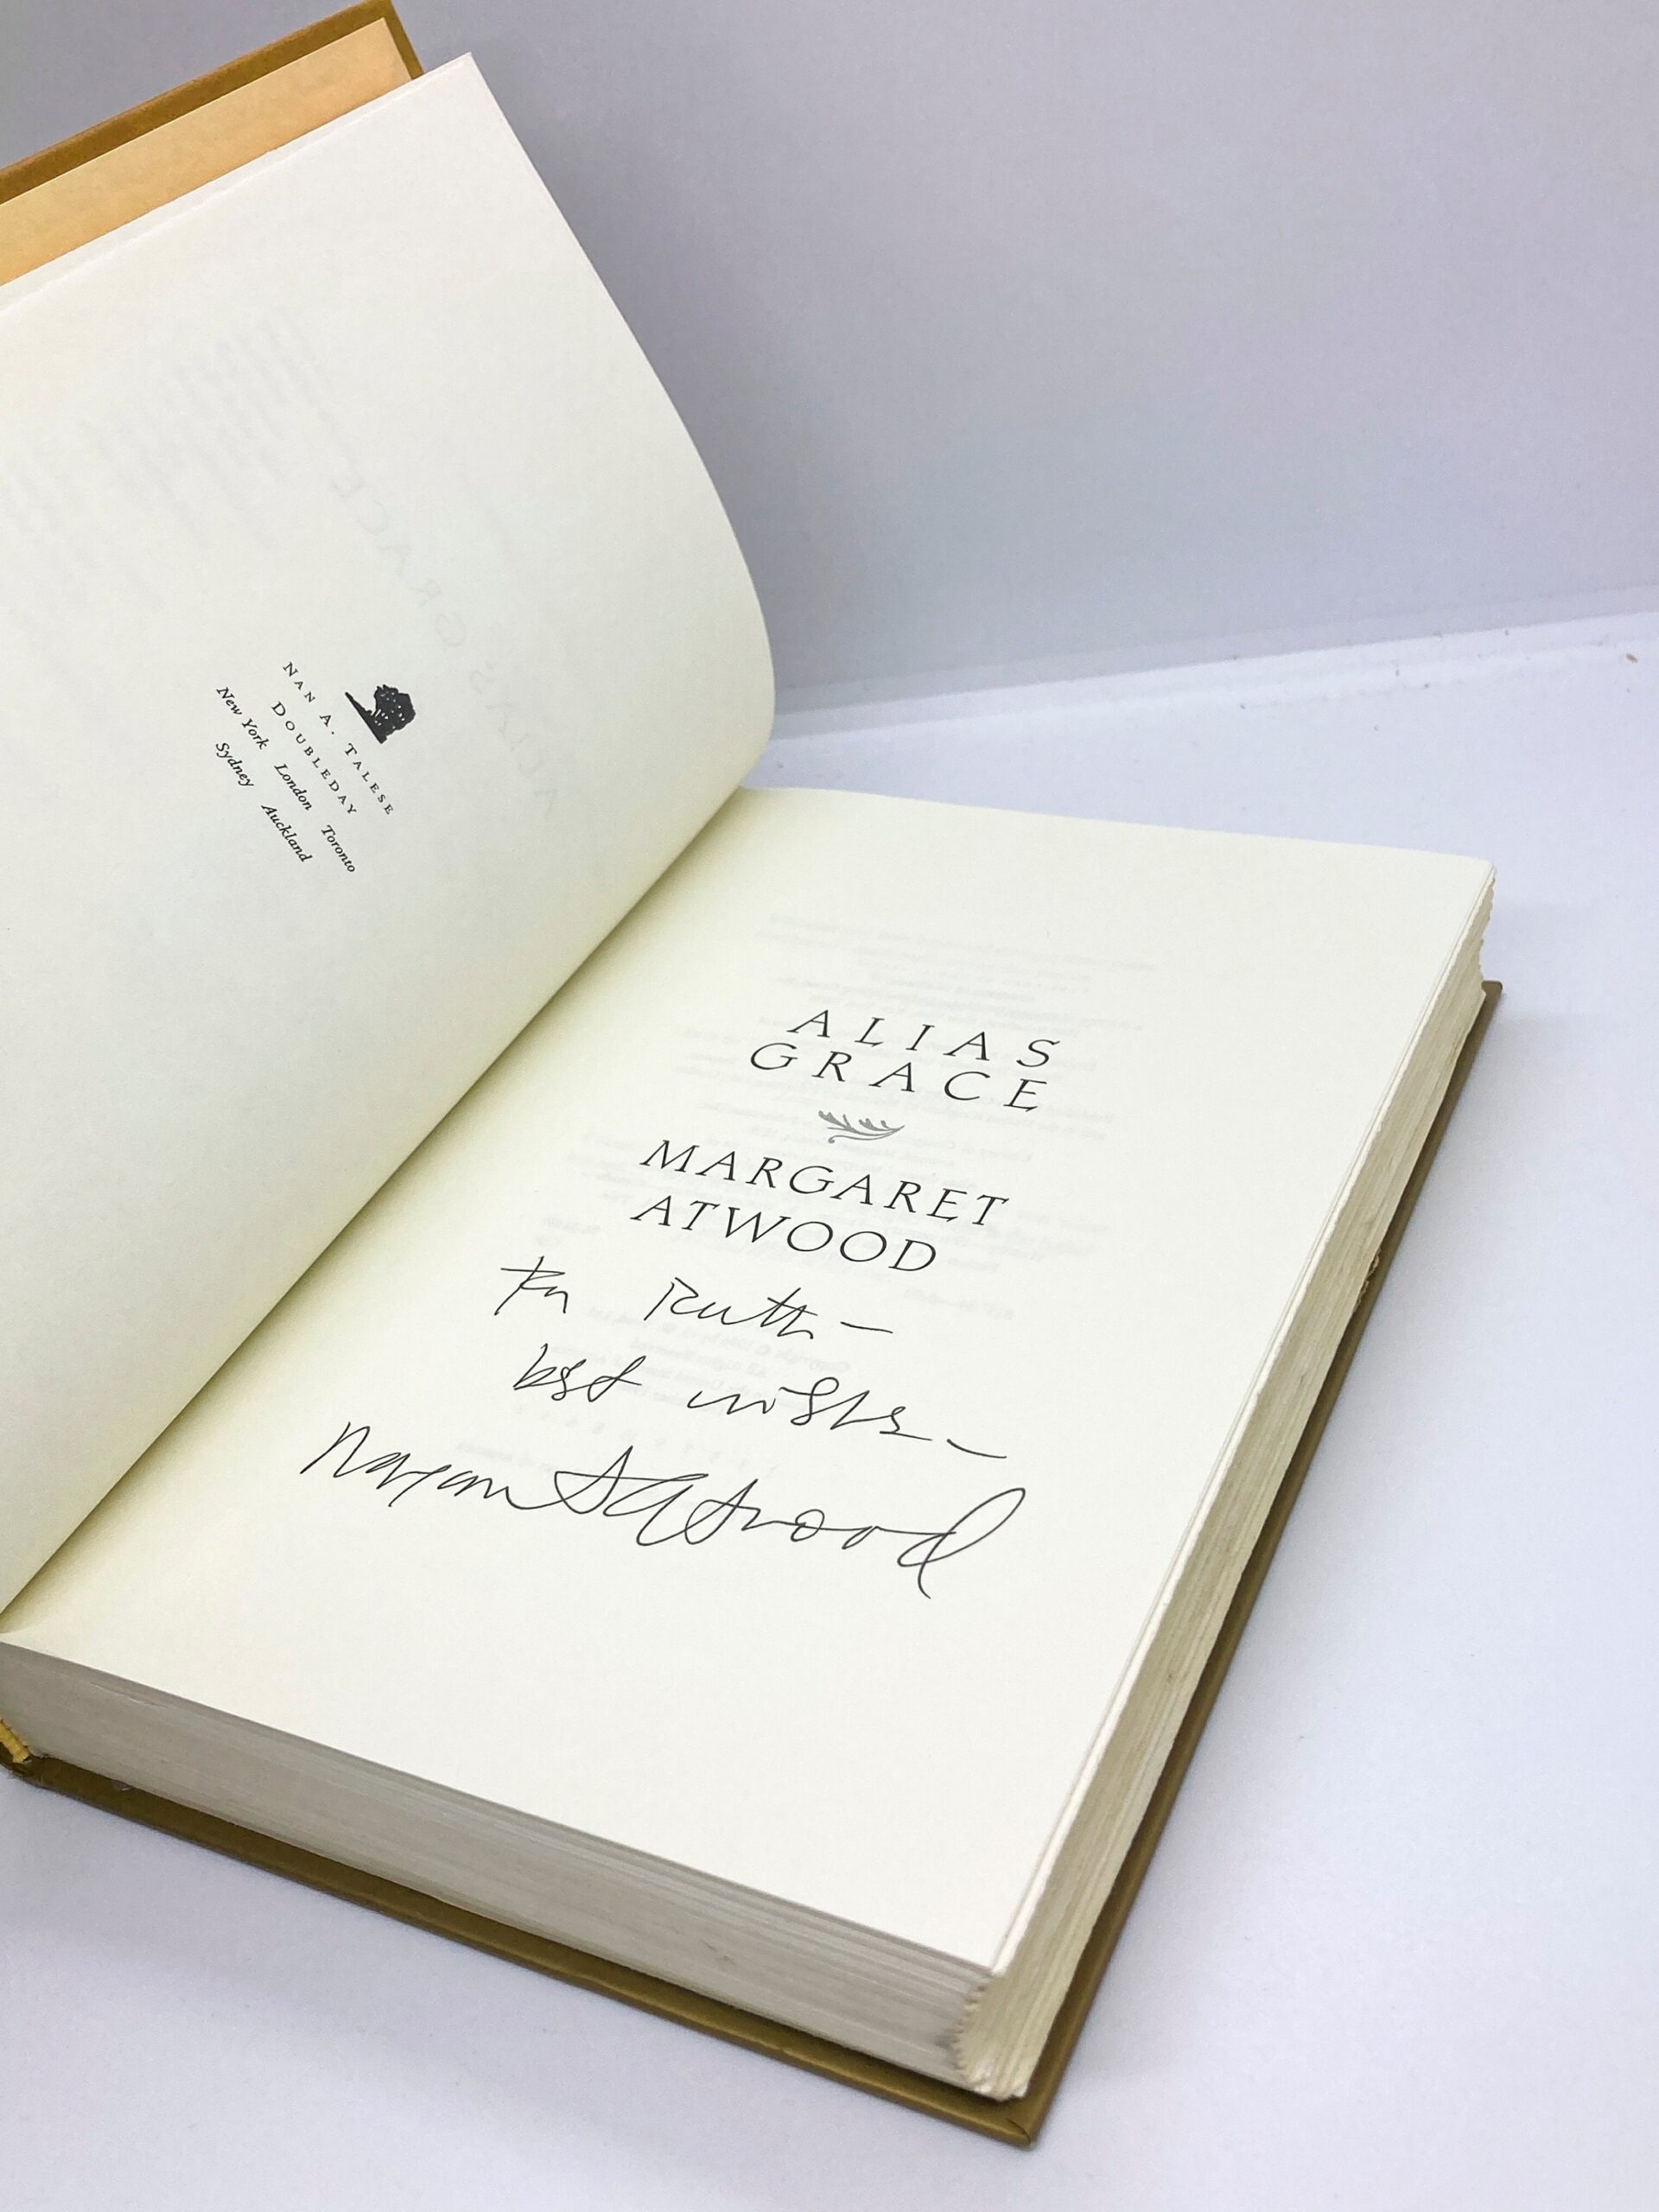 NAN A. TALESE
DOUBLEDAY
New York London Toronto
Sydney Auckland
ALIAS
GRACE
MARGARET
ATWOOD
For Ruth –
best wishes –
Margaret Atwood